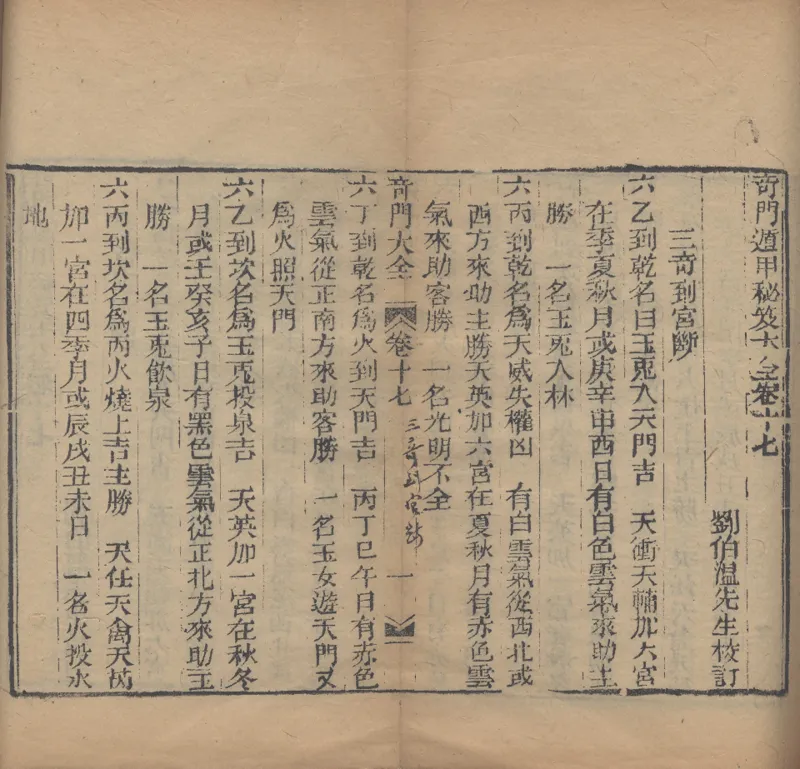 奇門遁甲秘笈大全卷十七
劉伯溫先生校訂
三奇到宮斷
六乙到乾名曰玉兎入天門吉　天衝天輔加六宮
在季夏秋月或庚辛申酉日有白色雲氣來助主
勝　一名玉兎入林
六丙到乾名爲天威失權凶　有白雲氣從西北或
西方來助主勝天英加六宮在夏秋月有赤色雲
氣來助客勝　一名光明不全
奇門大全　卷十七　三奇到宮斷　一
六丁到乾名爲火到天門吉　丙丁巳午日有赤色
雲氣從正南方來助客勝　一名玉女遊天門又
爲火照天門
六乙到坎名爲玉兎投泉吉　天英加一宮在秋冬
月或壬癸亥子日有黑色雲氣從正北方來助主
勝　一名玉兎飲泉
六丙到坎名爲丙火燒上吉主勝　天任天禽天芮
加一宮在四季月或辰戌丑未日　一名火投水
地